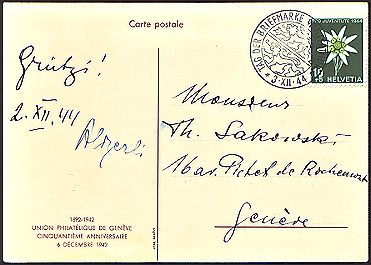 Carte postale
TAG DER BRIEFMARKE
3·XII·44
PRO JUVENTUTE 1944
10
+5 HELVETIA
Grützi!
2. XII. 44
Monsieur
Th. Sakowski
16 av. Pictet de Rochemont
Genève
1892-1942
UNION PHILATÉLIQUE DE GENÈVE
CINQUANTIÈME ANNIVERSAIRE
6 DÉCEMBRE 1942